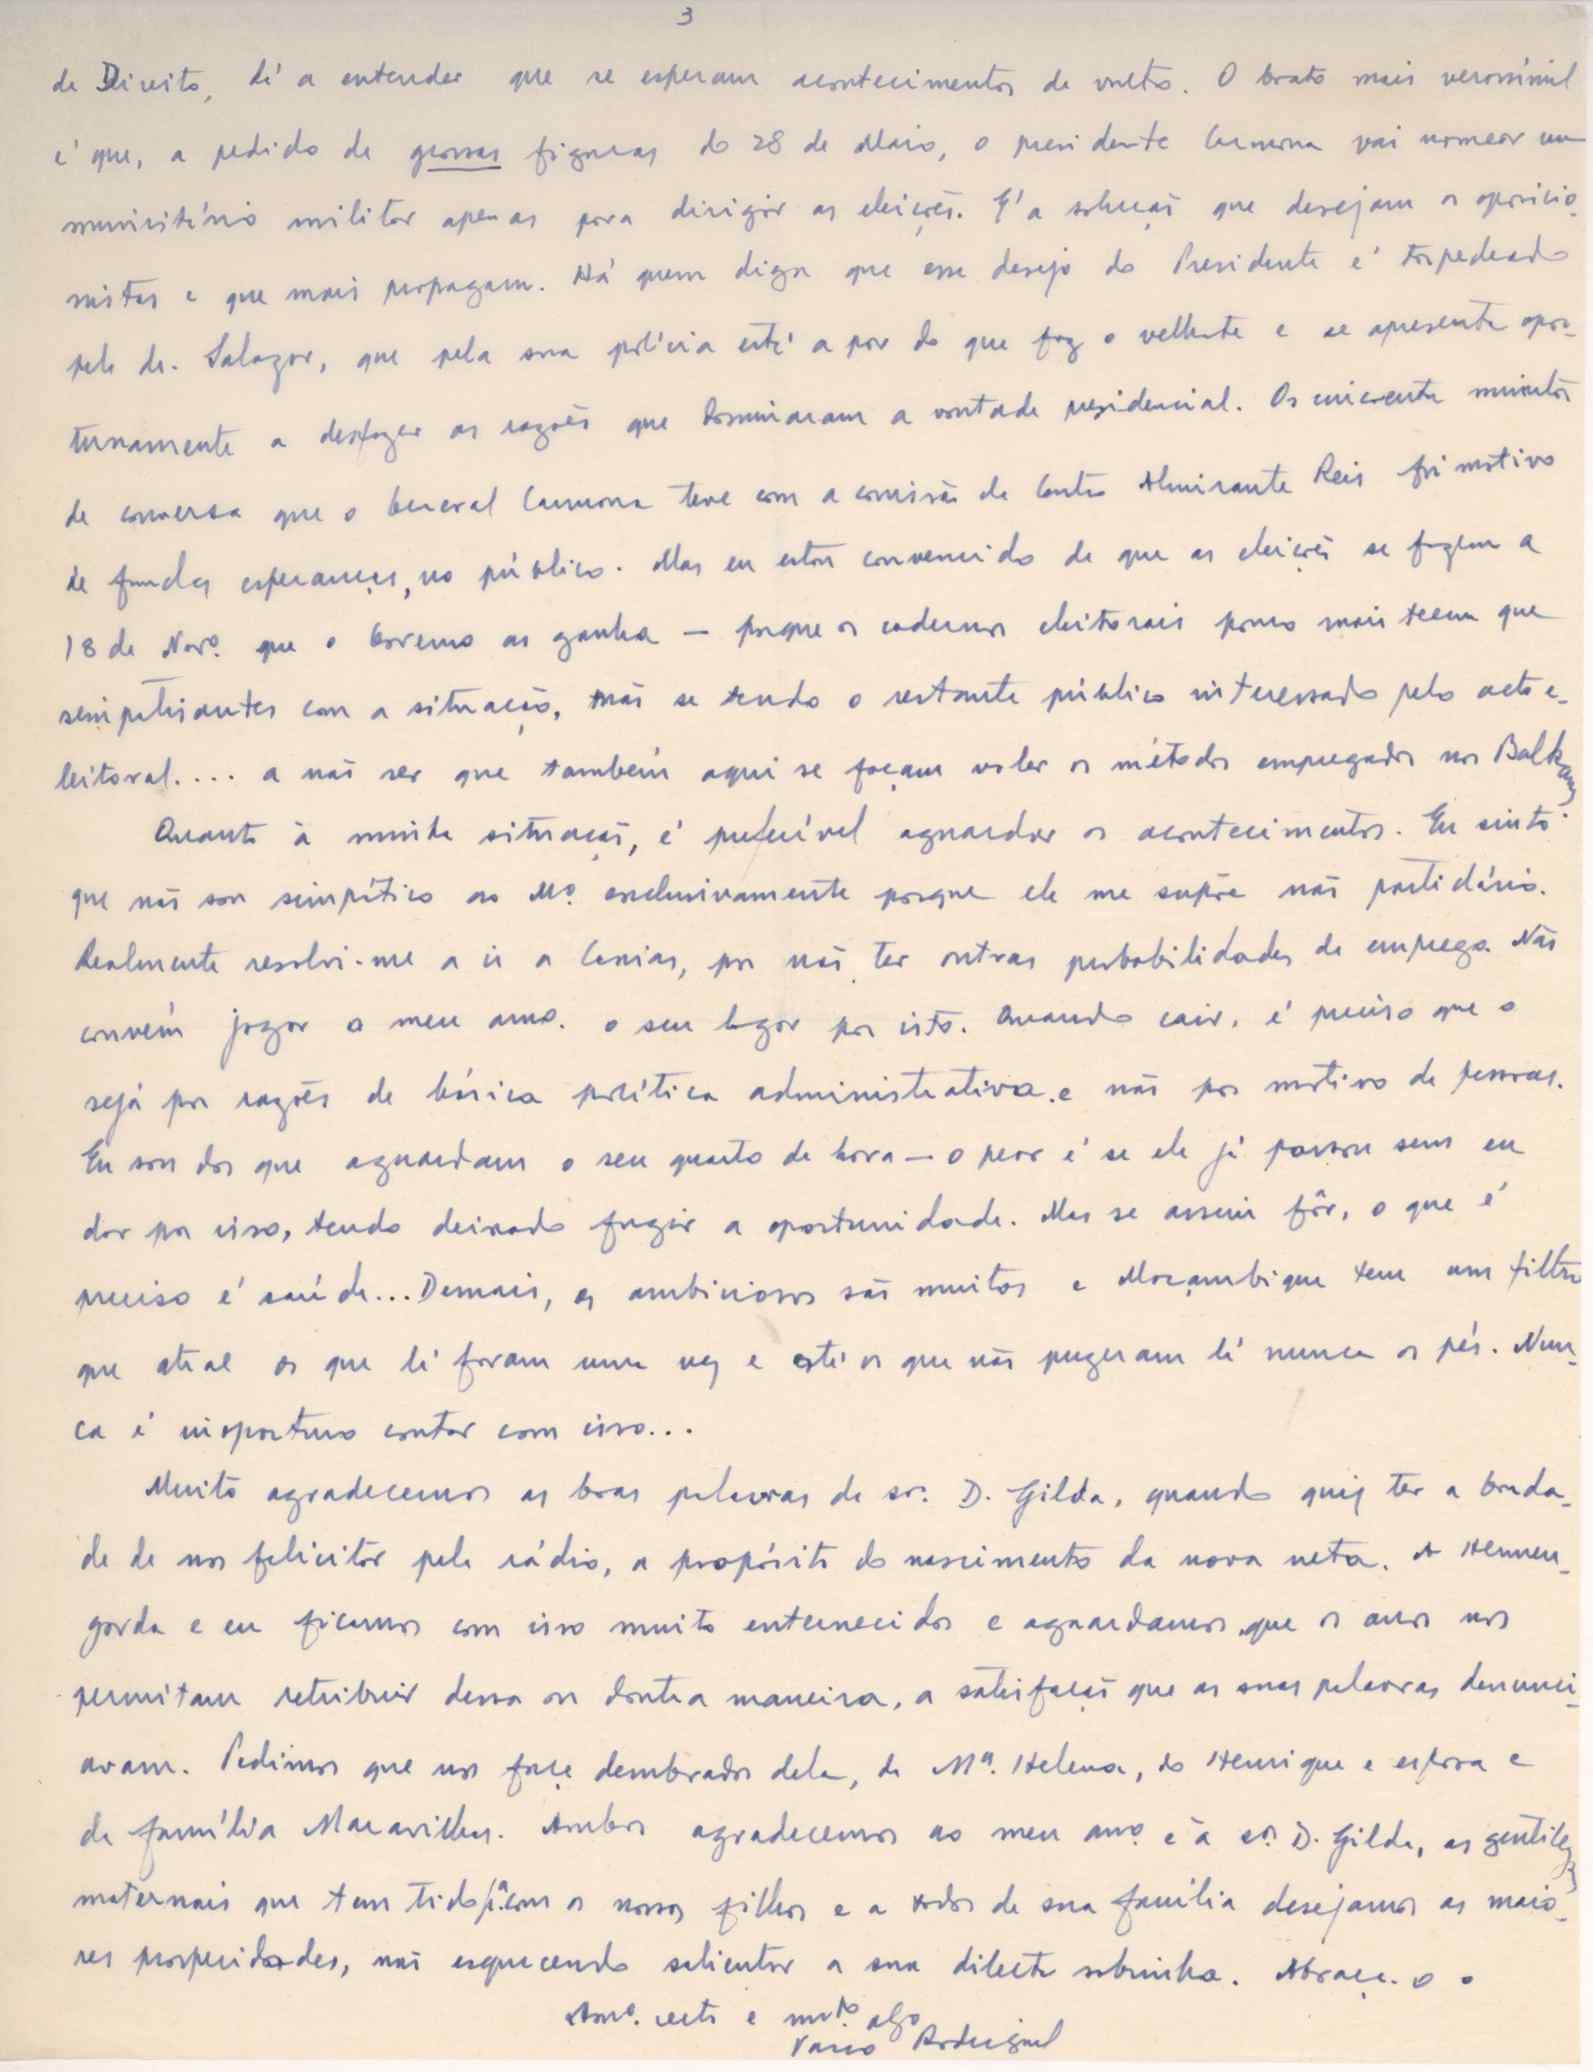 3
de Direito, dá a entender que se esperam acontecimentos de vulto. O boato mais verosímil
é que, a pedido de grossas figuras do 28 de Maio, o presidente Carmona vai nomear um
ministério militar apenas para dirigir as eleições. É a solução que desejam os oposicio-
nistas e que mais propagam. Há quem diga que esse desejo do Presidente é torpedeado
pelo dr. Salazar, que pela sua polícia está a par do que faz o velhote e se apresenta opor-
tunamente a desfazer as razões que dominaram a vontade presidencial. Os cincoenta minutos
de conversa que o General Carmona teve com a comissão do Contra Almirante Reis foi motivo
de fundas esperanças, no público. Mas eu estou convencido de que as eleições se fazem a
18 de Novº. que o Governo as ganha — porque os cadernos eleitorais pouco mais teem que
simpatisantes com a situação, não se tendo o restante público interessado pelo acto e-
leitoral.... a não ser que também aqui se façam valer os métodos empregados nos Balkans.
Quanto à minha situação, é preferível aguardar os acontecimentos. Eu sinto
que não sou simpático ao Mº. exclusivamente porque ele me supõe não partidário.
Realmente resolvi-me a ir a Caxias, por não ter outras probabilidades de emprego. Não
convém jogar o meu amº. o seu lugar por isto. Quando cair, é preciso que o
seja por razões de básica política administrativa e não por motivo de pessoas.
Eu sou dos que aguardam o seu quarto de hora — o peor é se ele já passou sem eu
dar por isso, tendo deixado fugir a oportunidade. Mas se assim fôr, o que é
preciso é saúde... Demais, os ambiciosos são muitos e Moçambique tem um filtro
que atrae os que lá foram uma vez e até os que não puzeram lá nunca os pés. Nun-
ca é inoportuno contar com isso...
Muito agradecemos as boas palavras da srª. D. Gilda, quando quiz ter a bonda-
de de nos felicitar pela rádio, a propósito do nascimento da nova neta. A Hermen-
garda e eu ficamos com isso muito enternecidos e aguardamos que os anos nos
permitam retribuir dessa ou doutra maneira, a satisfação que as suas palavras denunci-
avam. Pedimos que nos faça lembrados dela, da Mª. Helena, do Henrique e esposa e
da família Maravilhas. Ambos agradecemos ao meu amº. e à srª. D. Gilda, as gentilezas
maternais que tem tido pª. com os nossos filhos e a todos de sua família desejamos as maio-
res prosperidades, não esquecendo salientar a sua dilecta sobrinha. Abraça-o o
Amº. certo e mtº. obgº
Vasco